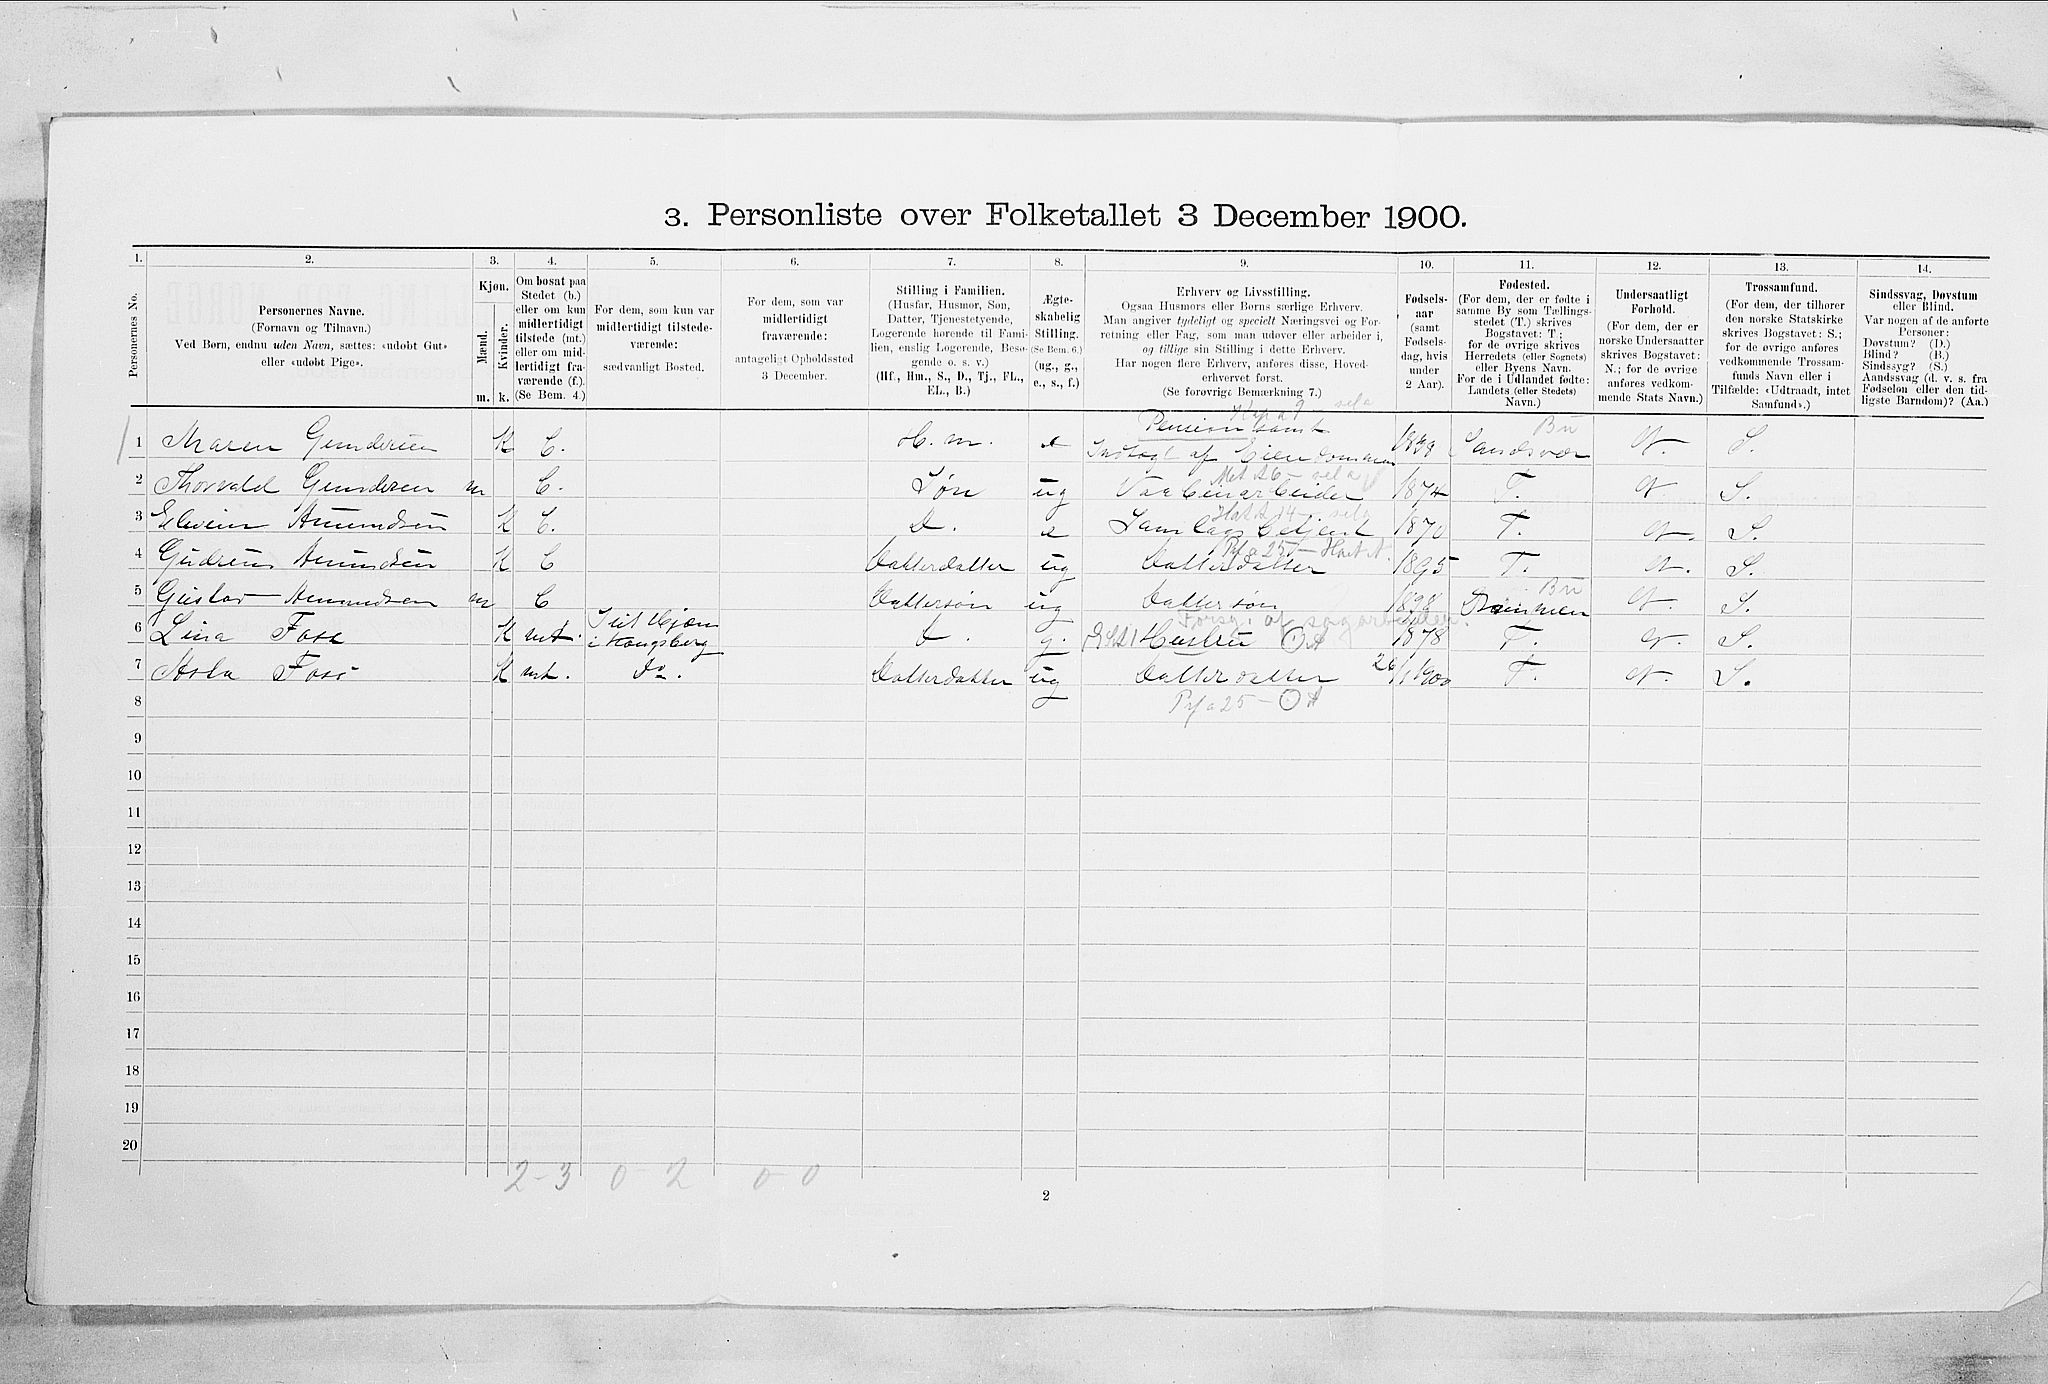 3. Personliste over Folketallet 3 December 1900.
1. 2. 3. 4. 5. 6. 7. 8. 9. 10. 11. 12. 13. 14.
Personernes No.
Personernes Navne.
(Fornavn og Tilnavn.)
Ved Børn, endnu uden Navn, sættes: «udøbt Gut»
eller «udøbt Pige».
Kjøn.
Mænd.
Kvinder.
m. k.
Om bosat paa
Stedet (b.)
eller om kun
midlertidigt
tilstede (mt.)
eller om mid-
lertidigt fra-
værende (f.).
(Se Bem. 4.)
For dem, som kun var
midlertidigt tilstede-
værende:
sædvanligt Bosted.
For dem, som var
midlertidigt
fraværende:
antageligt Opholdssted
3 December.
Stilling i Familien.
(Husfar, Husmor, Søn,
Datter, Tjenestetyende,
Logerende hørende til Fami-
lien, enslig Logerende, Besø-
gende o. s. v.)
(Hf., Hm., S., D., Tj., FL.,
EL., B.)
Ægte-
skabelig
Stilling.
(Se Bem. 6.)
(ug., g.,
e., s., f.)
Erhverv og Livsstilling.
Ogsaa Husmors eller Børns særlige Erhverv.
Man angiver tydeligt og specielt Næringsvei og For-
retning eller Fag, som man udøver eller arbeider i,
og tillige sin Stilling i dette Erhverv.
Har nogen flere Erhverv, anføres disse, Hoved-
erhvervet først.
(Se forøvrigt Bemærkning 7.)
Fødsels-
aar
(samt
Fødsels-
dag, hvis
under
2 Aar).
Fødested.
(For dem, der er fødte i
samme By som Tællings-
stedet (T.) skrives
Bogstavet: T;
for de øvrige skrives
Herredets (eller Sognets)
eller Byens Navn.
For de i Udlandet fødte:
Landets (eller Stedets)
Navn.)
Undersaatligt
Forhold.
(For dem, der er
norske Undersaatter
skrives Bogstavet:
N.; for de øvrige
anføres vedkom-
mende Stats Navn.)
Trossamfund.
(For dem, der tilhører
den norske Statskirke
skrives Bogstavet: S.;
for de øvrige anføres
vedkommende Trossam-
funds Navn eller i
Tilfælde: «Udtraadt, intet
Samfund».)
Sindssvag, Døvstum
eller Blind.
Var nogen af de anførte
Personer:
Døvstum? (D.)
Blind? (B.)
Sindssyg? (S.)
Aandssvag (d. v. s. fra
Fødselen eller den tid-
ligste Barndom)? (Aa.)
1 Maren Gundersen K b. H. m. e Pension samt Indtægt af Eiendommen Sandsvær N. S.
2 Thorvald Gundersen m b. Søn ug Vaabenarbeider 1874 T. N. S.
3 Amundsen K b. D. s Samlags Betjent 1870 T. N. S.
4 Gudrun Amundsen K b Datterdatter ug Datterdatter 1895 T. N. S.
5 Gustav Amundsen m b Dattersøn ug Dattersøn 1898 Drammen N. S.
6 Lina Fose K mt. i Kongsberg D. g. Hustru 1878 T. N. S.
7 Asta Fose K mt. Do. Datterdatter ug Datterdatter 26/1 1900 T. N. S.
8
9
10
11
12
13
14
15
16
17
18
19
20
2-3 0 2 0-0
2